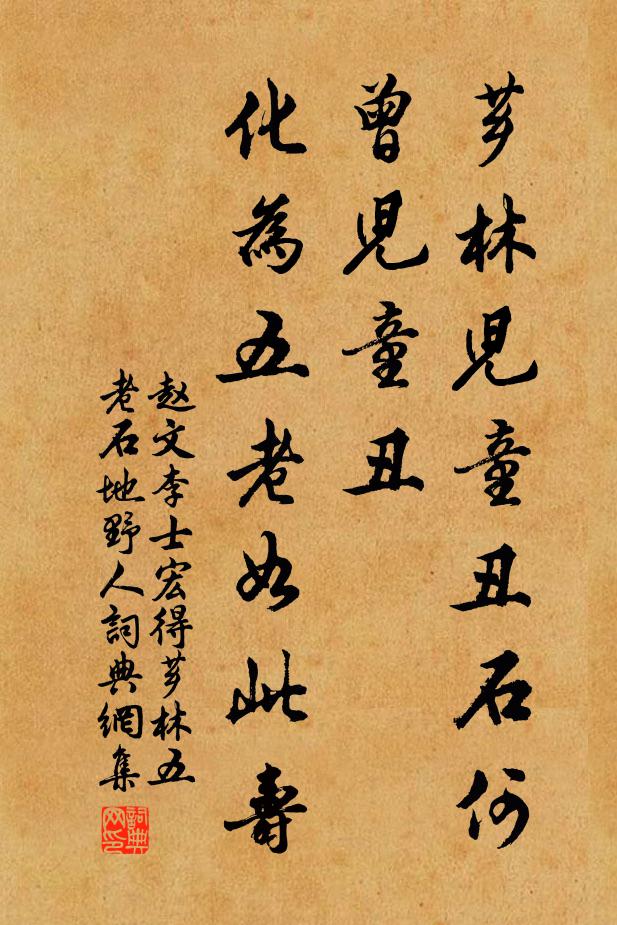 芗林児童丑石何
曾児童丑
化為五老如此壽
赵文李士宏得芗林五
老石地野人詞典網集
詞典网印